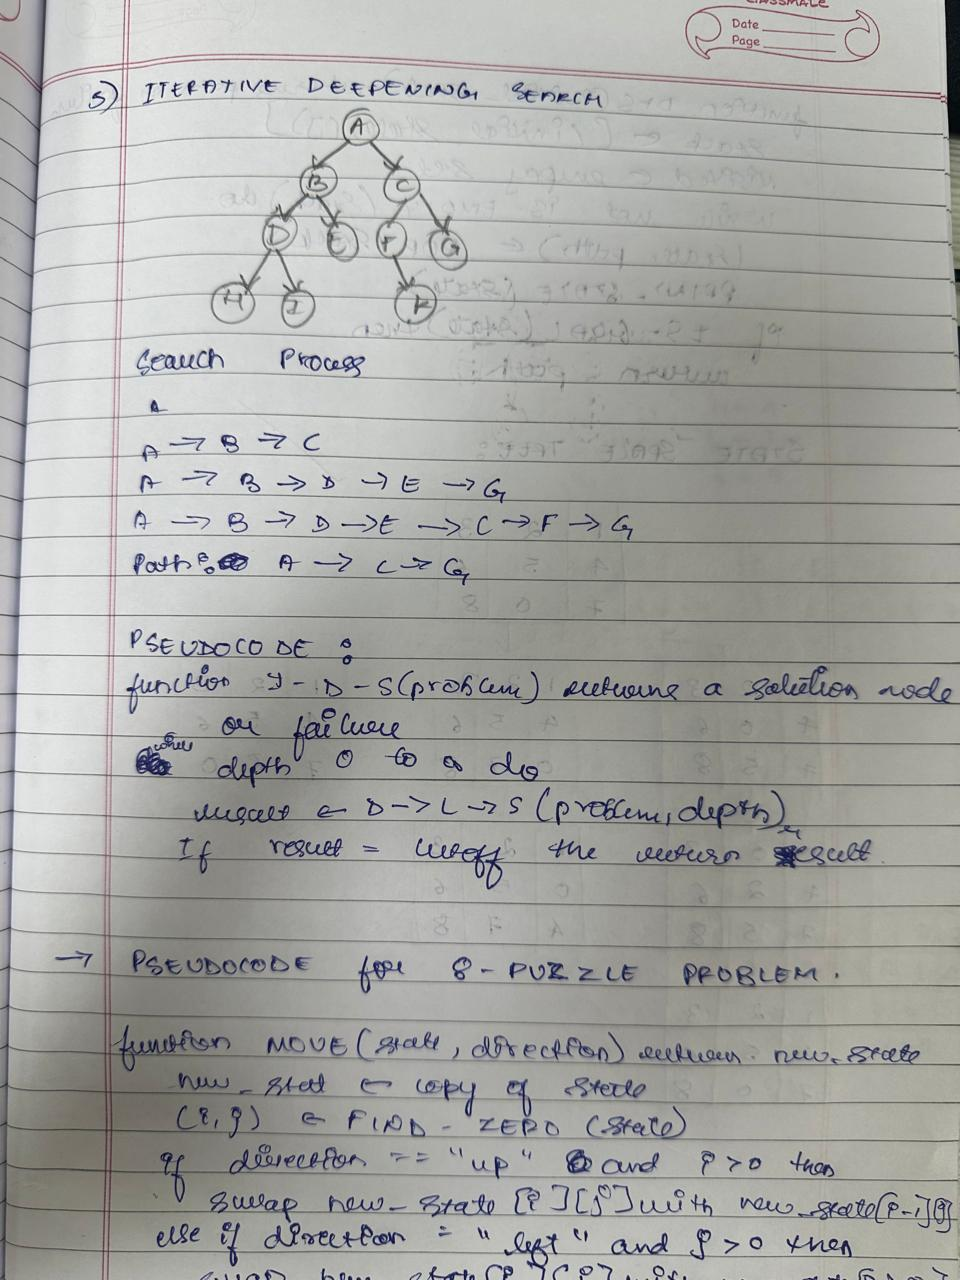 CLASSMATE
Date
Page
5) ITERATIVE DEEPENING SEARCH
A
B C
D E F G
H I K
Search Process
A
A → B → C
A → B → D → E → G
A → B → D → E → C → F → G
Path: A → C → G
PSEUDOCODE :
function I - D - S(problem) returns a solution node
or failure
depth 0 to do
result ← D → L → S (problem, depth)
If result = cutoff the return result.
→ PSEUDOCODE for 8 - PUZZLE PROBLEM.
function MOVE (state, direction) return new_state
new_stat ← copy of state
(i, j) ← FIND - ZERO (state)
if direction == "up" and i > 0 then
swap new_state [i][j] with new_state[i-1][j]
else if direction = "left" and j > 0 then